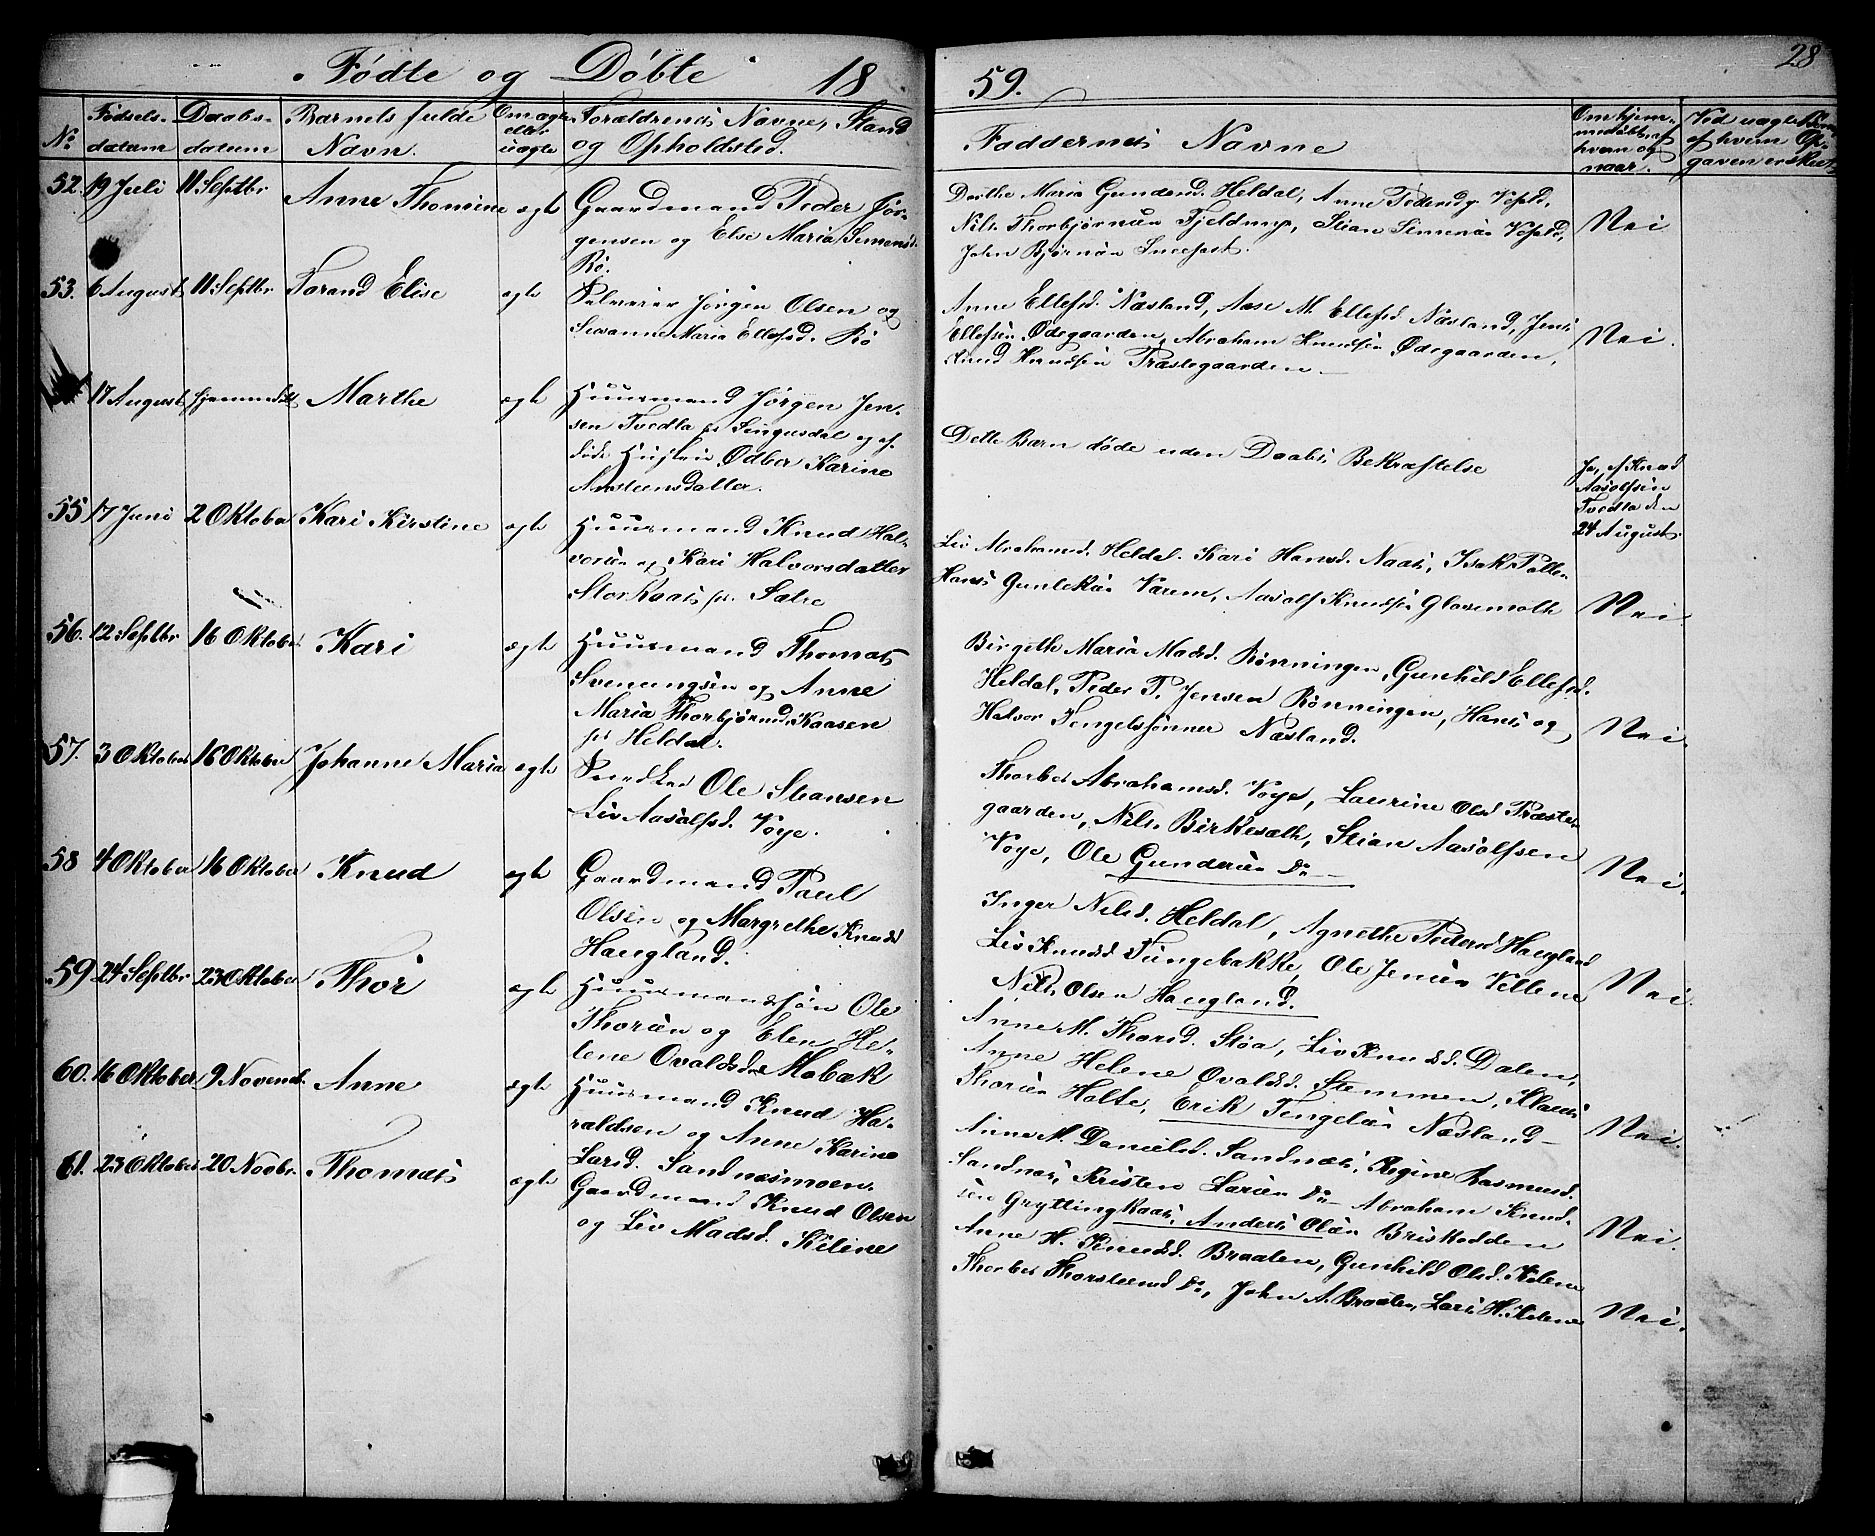 Fødte og Døbte 18
59.
28
No
Fødsels-
datum
Daabs-
datum
Barnets fulde
Navn.
Om ægte
eller
uægte
Forældrenes Navne, Stand
og Opholdsted.
Faddernes Navne
Om hjem-
medøbt, af
hvem og
naar.
Ved uægte
af hvem Op-
gaven er skeet
52. 19 Juli 11 Septbr Anne Thomine ægte Gaardmand Peder Jør-
gensen og Else Maria Simensd.
Rø.
Dorthe Maria Gundersd. Heldal, Anne Pedersd.
Nils Thorbjørnsen Fjeldstrup, Stian Simensen
John Bjørnsen
Nei
53. 6 August 11 Septbr Torand Elise ægte Jørgen Olsen og
Susanne Maria Ellefsd. Rø
Anne Ellefsd. Næsland, Aase M. Ellefsd Næsland, Jens
Ellefsen Ødegaarden, Abraham Knudsen Ødegaarden,
Knud Knudsen Præstegaarden
Nei.
17 August hjemmedøbt Marthe ægte Huusmand Jørgen Jen-
sen Tvedta Singusdal og
Hustru Odber Karine
Austeensdatter.
Dette Barn døde uden Daabs Bekræftelse
Ja, af Knud
Aasolfsen
Tvedta den
24 August.
55 17 Juni 2 Oktober Kari Kirstine ægte Huusmand Knud Hal-
vorsen og Kari Halvorsdatter
Storkaas
Liv Abrahamsd. Heldal. Kari Hansd. Naas, Isak
Hans Gunleksen Varem, Aasolf Knudsen
Nei
56. 12 Septbr 16 Oktober Kari ægte Huusmand Thomas
Svenungsen og Anne
Maria Thorbjørnsd. Kaasen
Heldal.
Birgethe Maria Madsd. Rønningen, Gunhild Ellefsd.
Heldal, Peder P. Jensen Rønningen, Hans og
Halvor Tengelssønner Næsland.
Nei.
57. 3 Oktober 16 Oktober Johanne Maria ægte Snedker Ole Steansen
Liv Aasolfsd. Voje.
Thorber Abrahamsd. Voje, Laurine Olsd Præste-
gaarden, Nils Birkesæth, Stian Aasolfsen
Voje, Ole Gundersen Do
Nei.
58 4 Oktober 16 Oktober Knud ægte Gaardmand Paul
Olsen og Margrethe Knudsd
Haugland.
Inger Nilsd. Heldal, Agnethe Pedersd Haugland
Liv Knudsd Tungebakke, Ole Jensen Vellene
Nils Olsen Haugland.
Nei.
59 24 Septbr 23 Oktober Thor ægte Huusmandssøn Ole
Thorsen og Elen He-
lene Ovaldsd Mobæk
Anne M. Thorsd. Støa, Liv Knudsd. Dalen,
Anne Helene Ovaldsd. Stemmen, Klaus
Thorsen Holte, Erik Tengelsen Næsland
Nei.
60. 16 Oktober 9 Novemb. Anne ægte Huusmand Knud Ha-
raldsen og Anne Karine
Larsd. Sandnæsmoen.
Anne M. Danielsd. Sandnæs, Regine Rasmusd.
Sandnæs, Kristen Larsen Do Abraham Knud-
sen Gryttingkaas, Anders Olsen Briskodden
Nei.
61. 23 Oktober 20 Novbr. Thomas ægte Gaardmand Knud Olsen
og Liv Madsd. Kilene
Anne H. Knudsd. Braaten, Gunhild Olsd. Kilene
Thorber Thorsteensd Do, John A. Braaten, Lars H. Kilene
Nei.